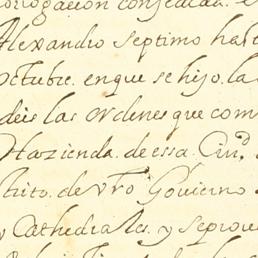 rrogacion consedida
Alexandro septimo has
octubre. en que se hizo. la
deis las ordenes que com
Hazienda. de essa Ciud.
trito. de vro Govierno
y Cathedrales. y se prov